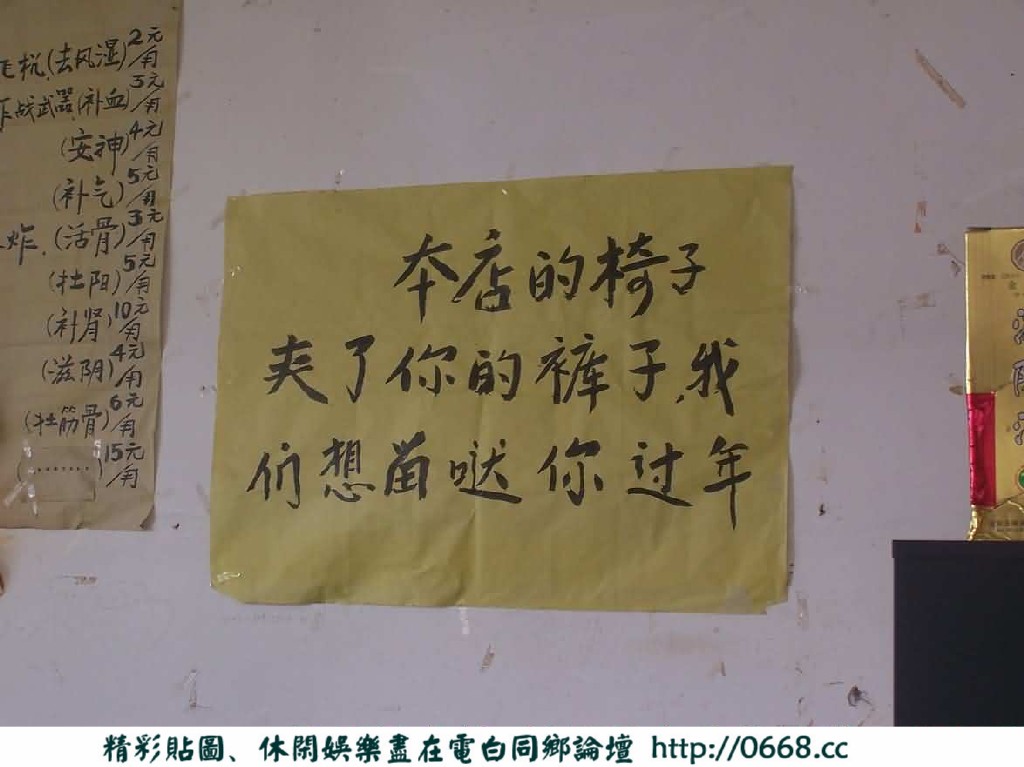 毛杭(去风湿)2元/角
炸战武器(补血)3元/角
(安神)4元/角
(补气)5元/角
炸.(活骨)3元/角
(壮阳)5元/角
(补肾)10元/角
(滋阴)4元/角
(壮筋骨)6元/角
(········)15元/角
本店的椅子
夹了你的裤子,我
们想苗哒你过年
精彩貼圖、休閑娛樂盡在電白同鄉論壇 http://0668.cc